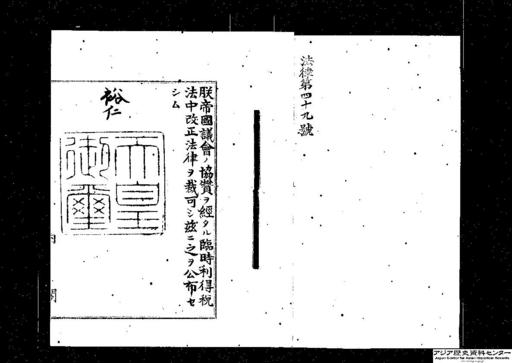 法律第四十九號
朕帝國議會ノ協贊ヲ經タル臨時利得税
法中改正法律ヲ裁可シ茲ニ之ヲ公布セ
シム
裕仁
天皇
御璽
内
閣
アジア歴史資料センター
Japan Center for Asian Historical Records